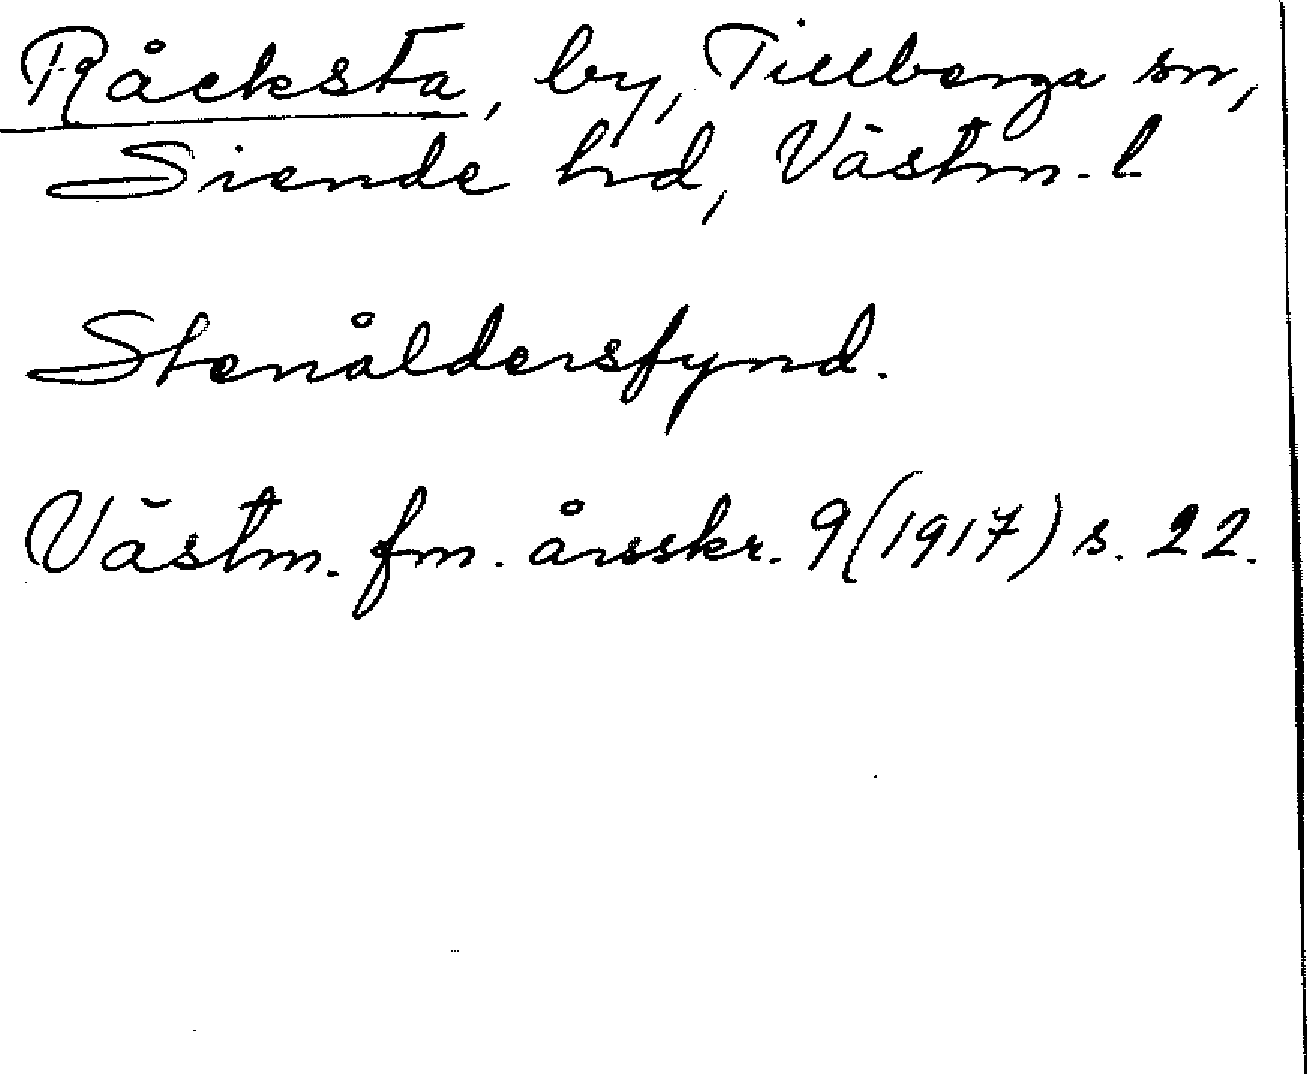 Råcksta, by, Tillberga sn,
Siende hd, Västm. l.
Stenåldersfynd.
Västm. fm. årsskr. 9 (1917) s. 22.